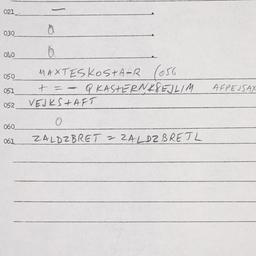 021 —
030 0
040 0
050 MAXTESKOSTA-R (056
051 + = - QKASTERNK8EJLIM AFPEJSAX
052 VEJKSTAFT
060 0
061 ZALDZBRET = ZALDZBRETL